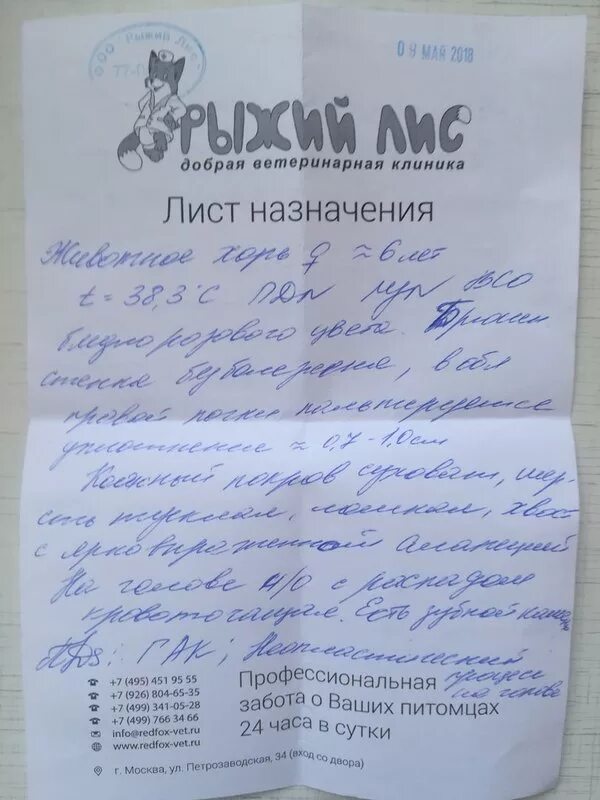 ООО "Рыжий Лис"
09 МАЙ 2018
РЫЖИЙ ЛИС
добрая ветеринарная клиника
Лист назначения
Животное хорь ♀ ≈ 6 лет
t = 38,3°C ПДN ВСО
бледно розового цвета. Брюшн
стенка безболезнена, в обл
правой почки пальпируется
уплотнение ≈ 0,7-1,0см
Кожный покров суховат, шер-
сть тусклая, ломкая, хвост
с ярко выраженной алопецией
На голове н/о с распадом
кровоточащая. Есть зубной камень
ПDs: ГАК; Неопластический
процесс
на голове
+7 (495) 451 95 55
+7 (926) 804-65-35
+7 (499) 341-05-28
+7 (499) 766 34 66
info@redfox-vet.ru
www.redfox-vet.ru
Профессиональная
забота о Ваших питомцах
24 часа в сутки
г. Москва, ул. Петрозаводская, 34 (вход со двора)